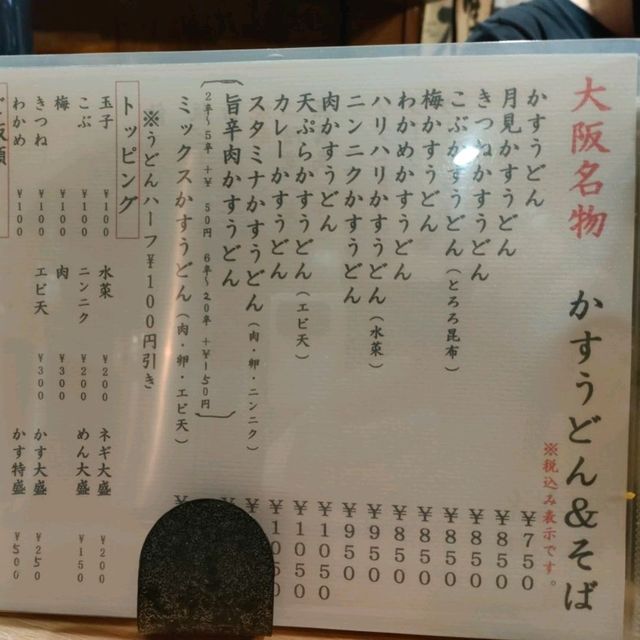 大阪名物 かすうどん＆そば
※税込み表示です。
かすうどん ¥750
月見かすうどん ¥850
きつねかすうどん ¥850
こぶかすうどん（とろろ昆布） ¥850
梅かすうどん ¥850
わかめかすうどん ¥850
ハリハリかすうどん（水菜） ¥950
ニンニクかすうどん ¥950
肉かすうどん ¥1050
天ぷらかすうどん（エビ天） ¥1050
カレーかすうどん ¥1050
スタミナかすうどん（肉・卵・ニンニク） ¥
旨辛肉かすうどん ¥
〔2辛〜5辛 +¥50円 6辛〜20辛 +¥150円〕
ミックスかすうどん（肉・卵・エビ天） ¥
※うどんハーフ¥100円引き
トッピング
玉子 ¥100 水菜 ¥200 ネギ大盛 ¥200
こぶ ¥100 ニンニク ¥200 めん大盛 ¥150
梅 ¥100 肉 ¥300
きつね ¥100 エビ天 ¥300 かす大盛 ¥250
わかめ ¥100 かす特盛 ¥500